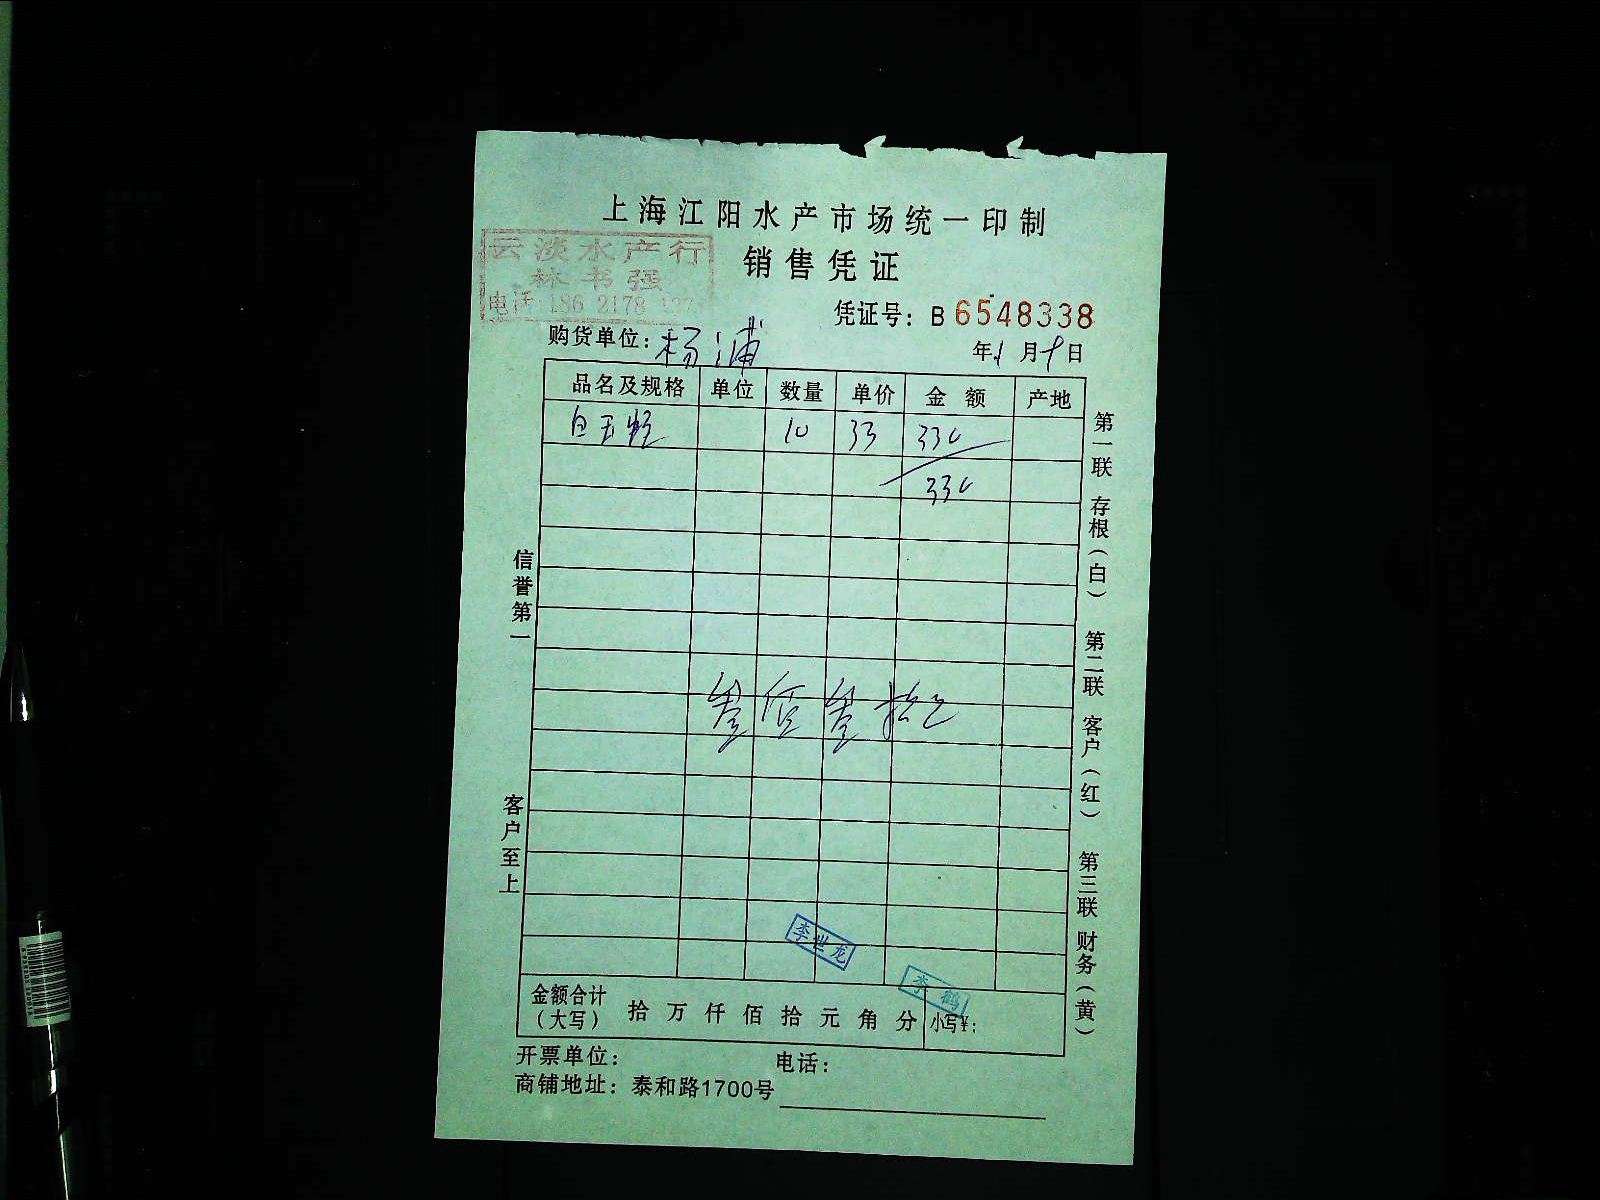 上海江阳水产市场统一印制
销售凭证
云淡水产行
林书强
电话:186 2178
凭证号: B 6548338
购货单位: 杨浦
年 1 月 十 日
品名及规格 单位 数量 单价 金额 产地
白玉蛏 10 33 330
330
叁佰叁拾元
李世龙
李鹤
金额合计(大写) 拾 万 仟 佰 拾 元 角 分 小写¥:
开票单位: 电话:
商铺地址: 泰和路1700号
信誉第一
客户至上
第一联 存根(白) 第二联 客户(红) 第三联 财务(黄)